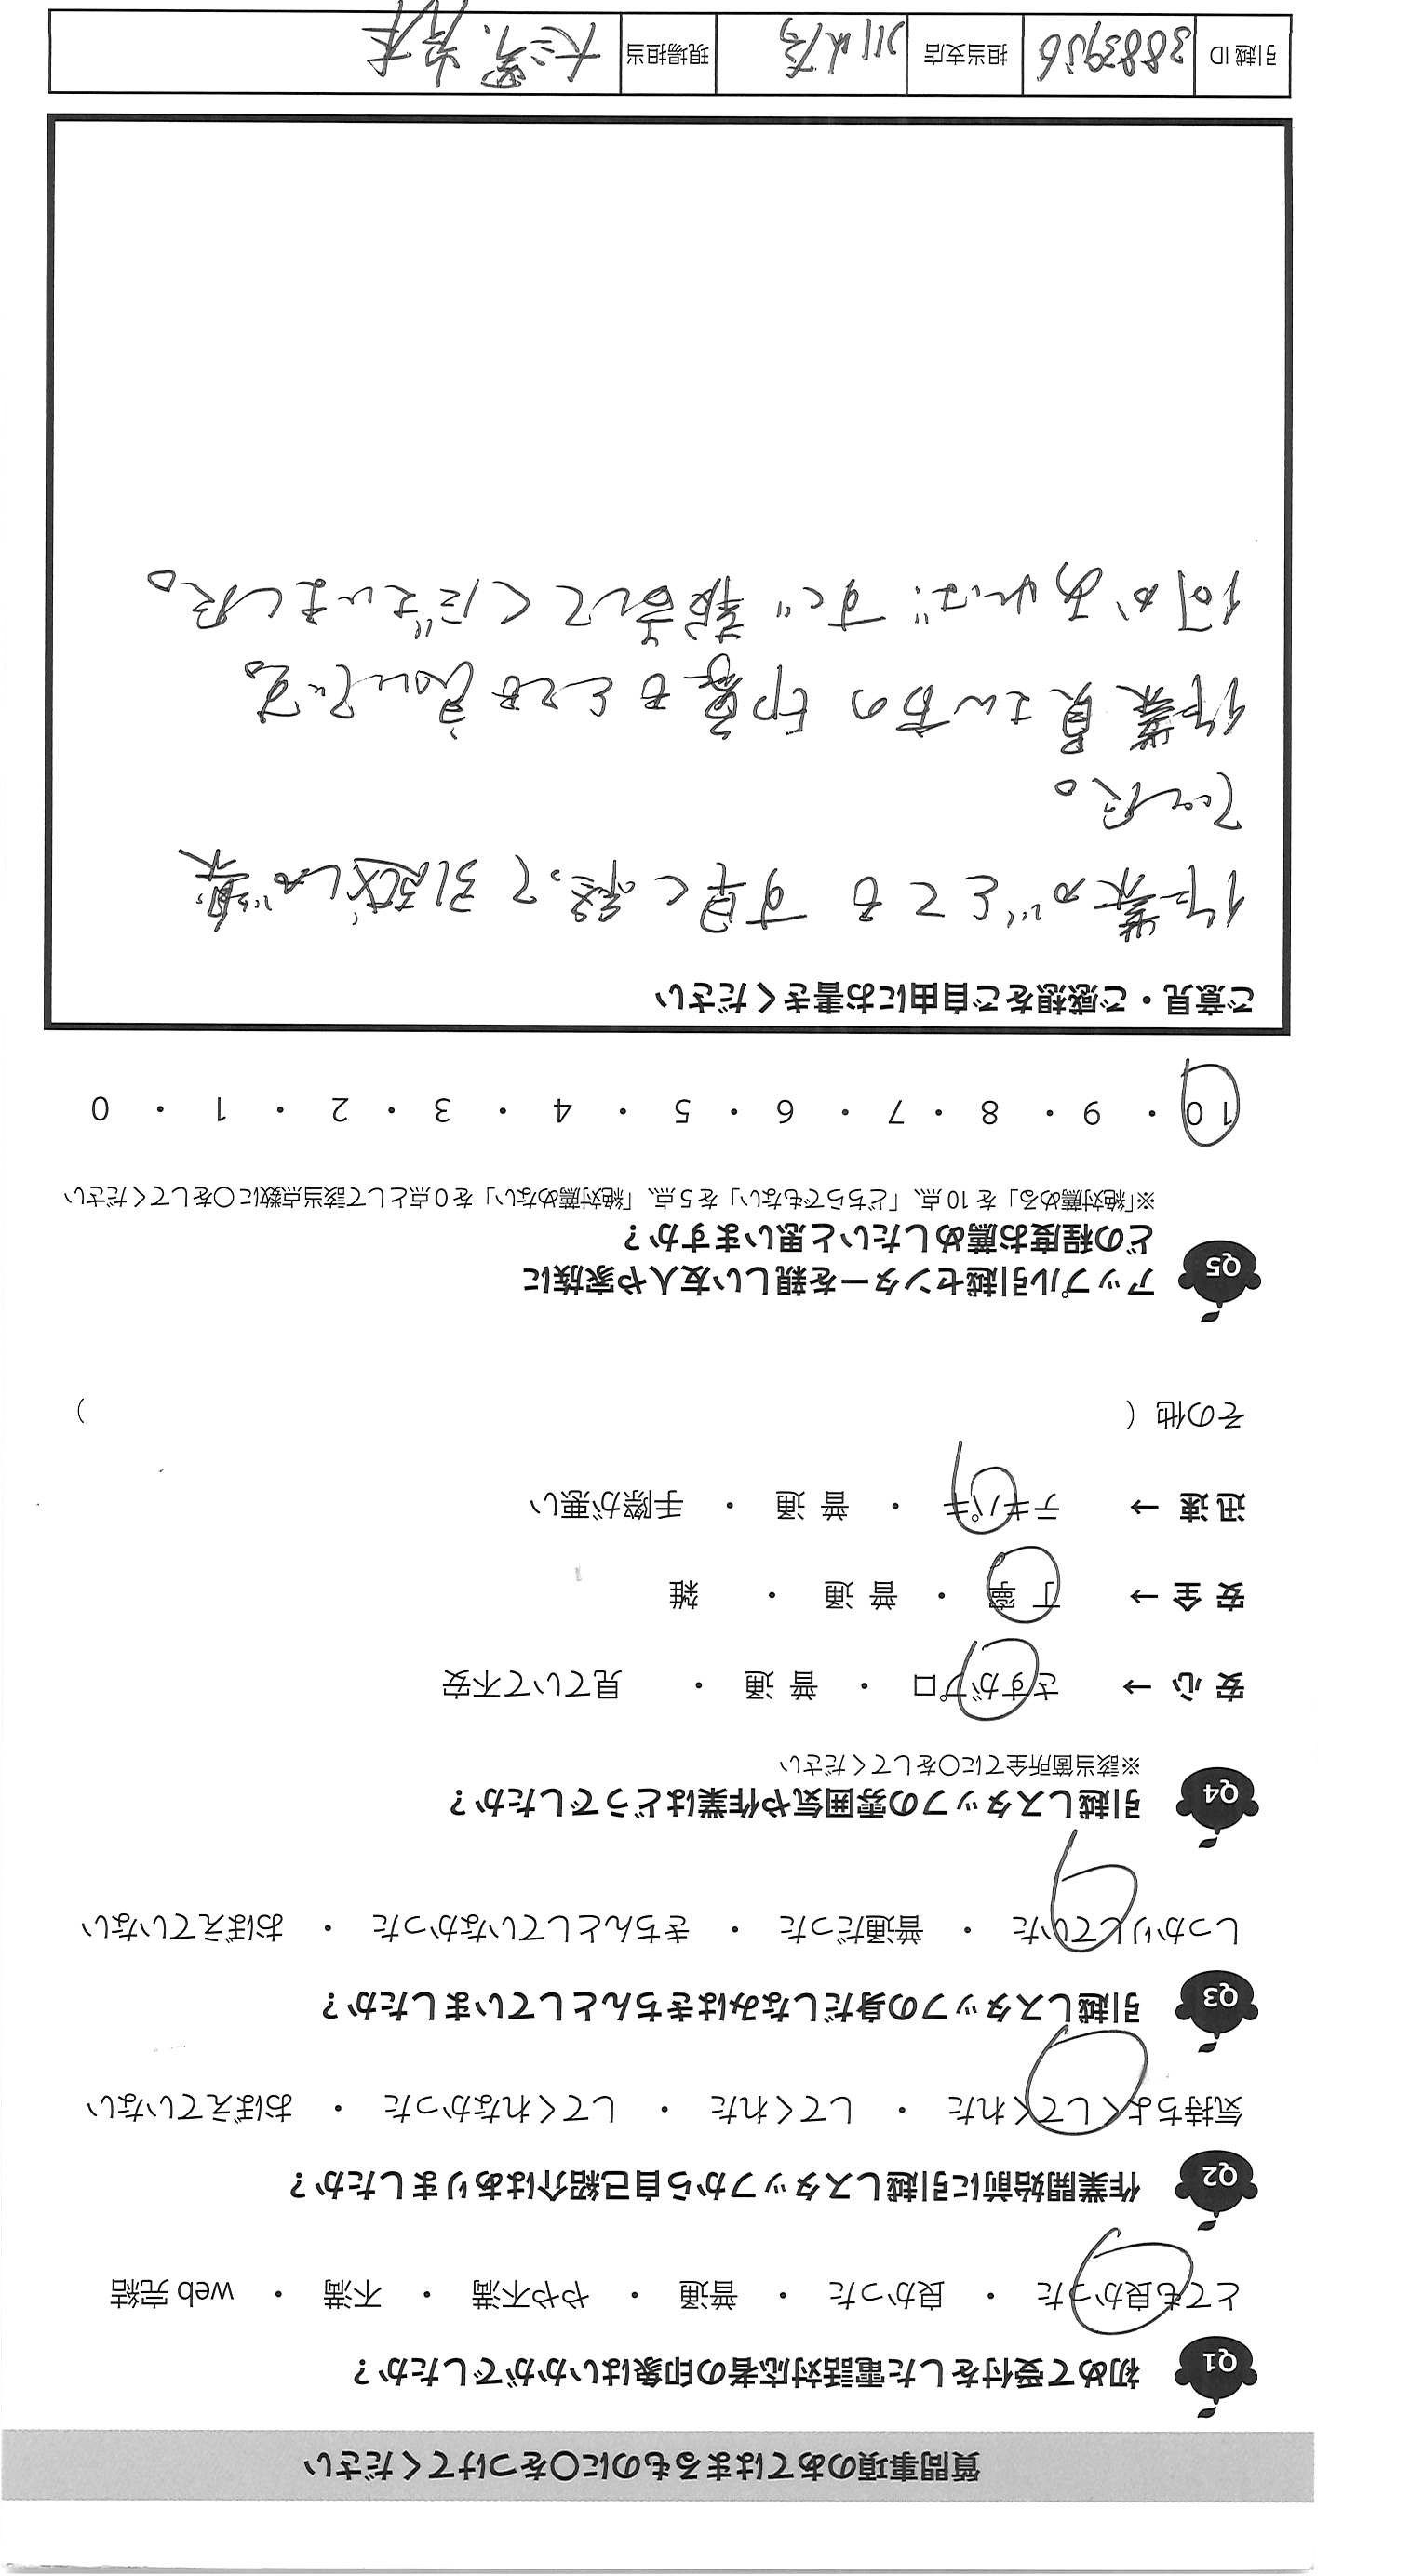 質問事項のあてはまるものに〇をつけてください
Q1 初めて受付をした電話対応者の印象はいかがでしたか？
とても良かった ・ 良かった ・ 普通 ・ やや不満 ・ 不満 ・ web 完結
Q2 作業開始前に引越しスタッフから自己紹介はありましたか？
気持ちよくしてくれた ・ してくれた ・ してくれなかった ・ おぼえていない
Q3 引越しスタッフの身だしなみはきちんとしていましたか？
しっかりしていた ・ 普通だった ・ きちんとしていなかった ・ おぼえていない
Q4 引越しスタッフの雰囲気や作業はどうでしたか？
※該当箇所全てに〇をしてください
安 心 → さすがプロ ・ 普 通 ・ 見ていて不安
安 全 → 丁 寧 ・ 普 通 ・ 雑
迅 速 → テキパキ ・ 普 通 ・ 手際が悪い
その他（ ）
Q5 アップル引越センターを親しい友人や家族に
どの程度お薦めしたいと思いますか？
※「絶対薦める」を 10 点、「どちらでもない」を 5 点、「絶対薦めない」を 0 点として該当点数に〇をしてください
10 ・ 9 ・ 8 ・ 7 ・ 6 ・ 5 ・ 4 ・ 3 ・ 2 ・ 1 ・ 0
ご意見・ご感想をご自由にお書きください
作業がとても早く終って引越しが楽
でした。
作業員さん方の印象もとても良いです。
何かあればすぐ報告してくださいました。
引越 ID 担当支店 現場担当